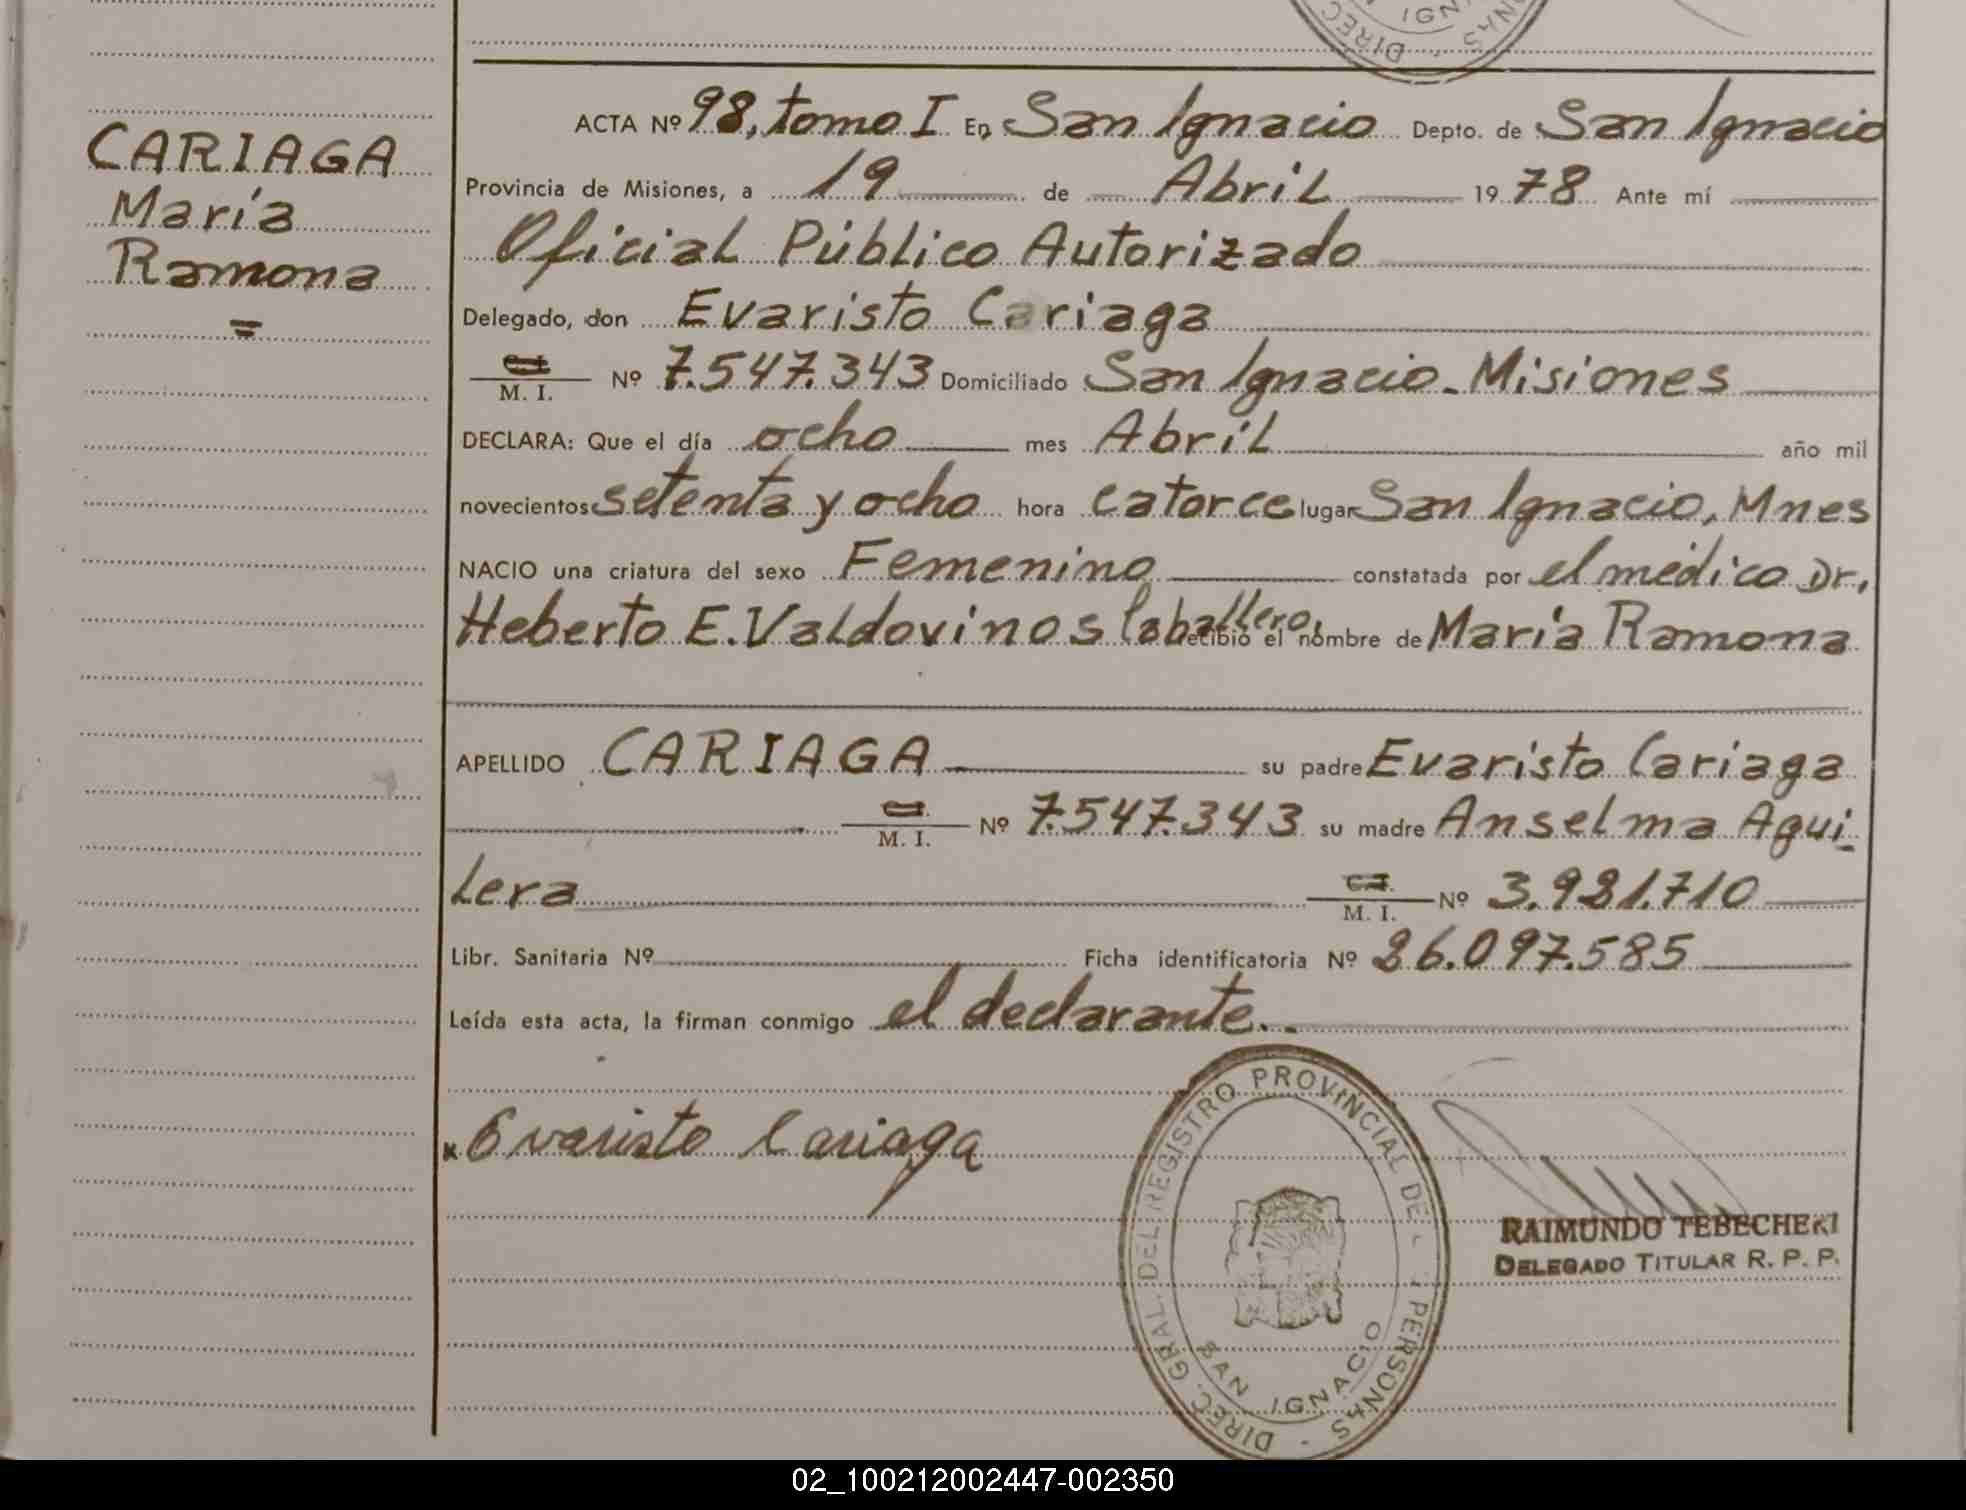 CARIAGA
María
Ramona
=
ACTA Nº 98, tomo I En San Ignacio Depto. de San Ignacio
Provincia de Misiones, a 19 de Abril 1978 Ante mí
Oficial Público Autorizado
Delegado, don Evaristo Cariaga
M. I. Nº 7.547.343 Domiciliado San Ignacio - Misiones
DECLARA: Que el día ocho mes Abril año mil
novecientos setenta y ocho hora catorce lugar San Ignacio, Mnes
NACIO una criatura del sexo Femenino constatada por el médico Dr,
Heberto E. Valdovinos Caballero, recibió el nombre de María Ramona
APELLIDO CARIAGA su padre Evaristo Cariaga
M. I. Nº 7.547.343 su madre Anselma Agui-
Lera M. I. Nº 3.921.710
Libr. Sanitaria Nº Ficha identificatoria Nº 26.097.585
Leída esta acta, la firman conmigo el declarante..
x Evaristo Cariaga
DIREC. GRAL. DEL REGISTRO PROVINCIAL DE PERSONAS
SAN IGNACIO
RAIMUNDO TEBECHERI
DELEGADO TITULAR R. P. P.
02_100212002447-002350